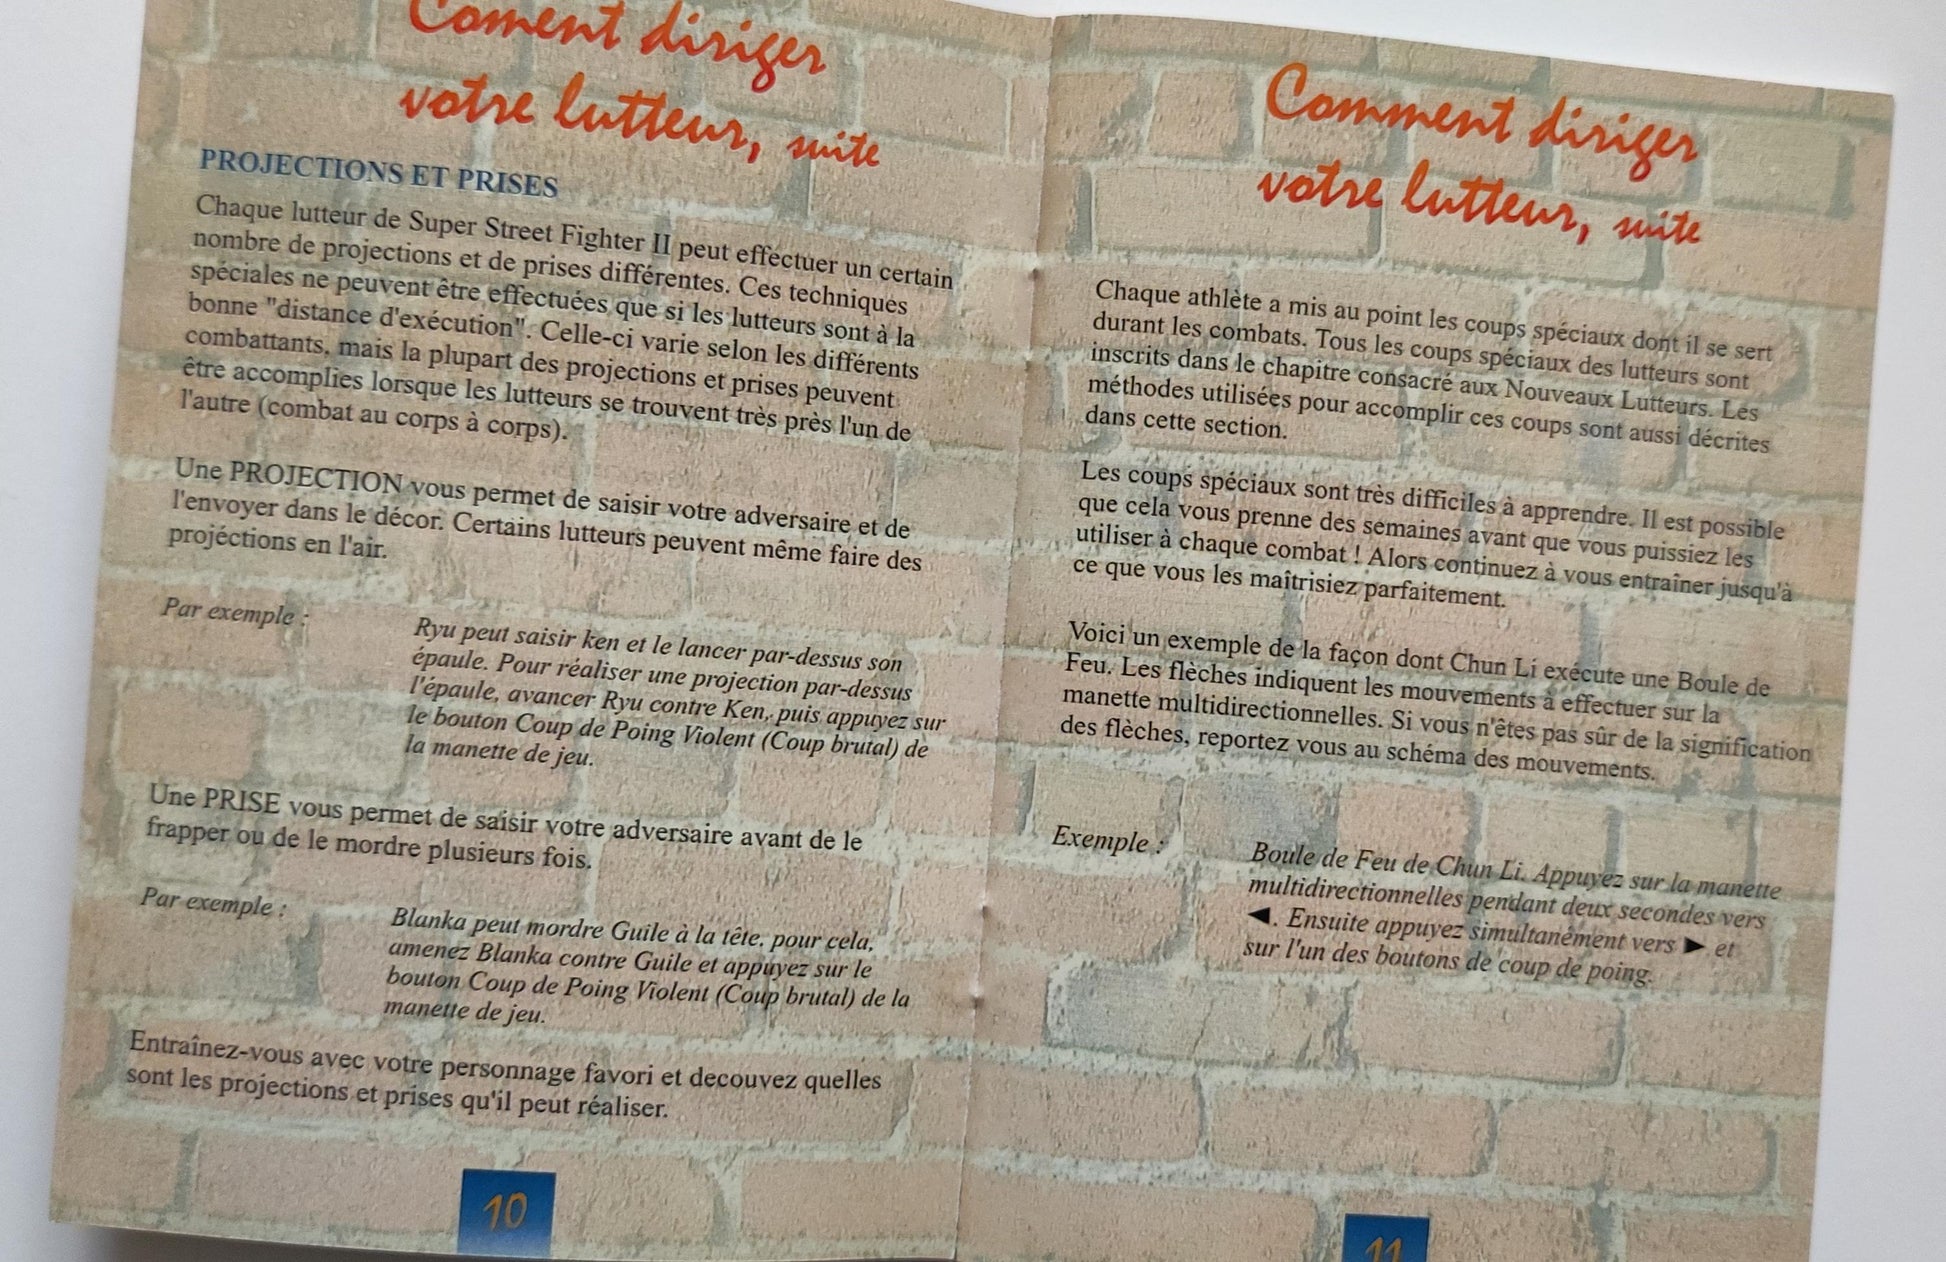 Coment diriger
votre lutteur, suite
PROJECTIONS ET PRISES
Chaque lutteur de Super Street Fighter II peut effectuer un certain
nombre de projections et de prises différentes. Ces techniques
spéciales ne peuvent être effectuées que si les lutteurs sont à la
bonne "distance d'exécution". Celle-ci varie selon les différents
combattants, mais la plupart des projections et prises peuvent
être accomplies lorsque les lutteurs se trouvent très près l'un de
l'autre (combat au corps à corps).
Une PROJECTION vous permet de saisir votre adversaire et de
l'envoyer dans le décor. Certains lutteurs peuvent même faire des
projéctions en l'air.
Par exemple :
Ryu peut saisir ken et le lancer par-dessus son
épaule. Pour réaliser une projection par-dessus
l'épaule, avancer Ryu contre Ken, puis appuyez sur
le bouton Coup de Poing Violent (Coup brutal) de
la manette de jeu.
Une PRISE vous permet de saisir votre adversaire avant de le
frapper ou de le mordre plusieurs fois.
Par exemple :
Blanka peut mordre Guile à la tête. pour cela,
amenez Blanka contre Guile et appuyez sur le
bouton Coup de Poing Violent (Coup brutal) de la
manette de jeu.
Entraînez-vous avec votre personnage favori et decouvez quelles
sont les projections et prises qu'il peut réaliser.
10
Comment diriger
votre lutteur, suite
Chaque athlète a mis au point les coups spéciaux dont il se sert
durant les combats. Tous les coups spéciaux des lutteurs sont
inscrits dans le chapitre consacré aux Nouveaux Lutteurs. Les
méthodes utilisées pour accomplir ces coups sont aussi décrites
dans cette section.
Les coups spéciaux sont très difficiles à apprendre. Il est possible
que cela vous prenne des semaines avant que vous puissiez les
utiliser à chaque combat ! Alors continuez à vous entraîner jusqu'à
ce que vous les maîtrisiez parfaitement.
Voici un exemple de la façon dont Chun Li exécute une Boule de
Feu. Les flèches indiquent les mouvements à effectuer sur la
manette multidirectionnelles. Si vous n'êtes pas sûr de la signification
des flèches, reportez vous au schéma des mouvements.
Exemple :
Boule de Feu de Chun Li. Appuyez sur la manette
multidirectionnelles pendant deux secondes vers
◄. Ensuite appuyez simultanément vers ► et
sur l'un des boutons de coup de poing.
11